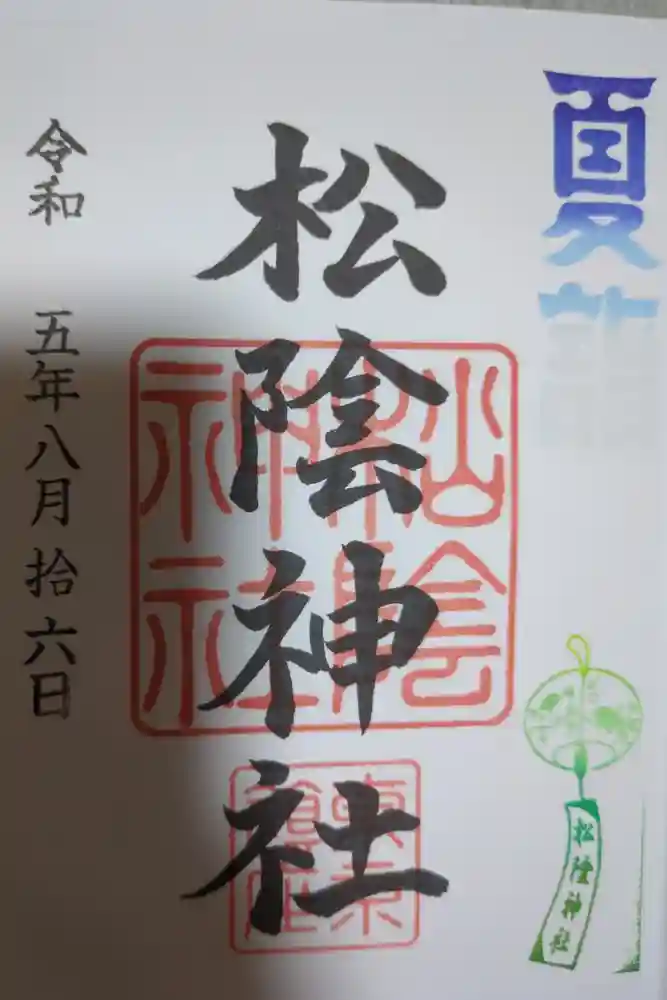 夏詣
松陰神社
松陰神社
松陰神社
令和 五年八月拾六日